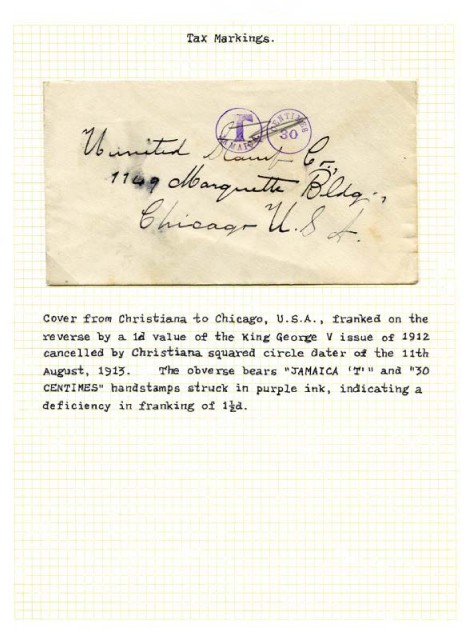 Tax Markings.
T
JAMAICA
CENTIMES
30
Uunited Stamp Co.,
1149 Marquette Bldg.,
Chicago U.S.A.
Cover from Christiana to Chicago, U.S.A., franked on the
reverse by a 1d value of the King George V issue of 1912
cancelled by Christiana squared circle dater of the 11th
August, 1913. The obverse bears "JAMAICA 'T'" and "30
CENTIMES" handstamps struck in purple ink, indicating a
deficiency in franking of 1½d.